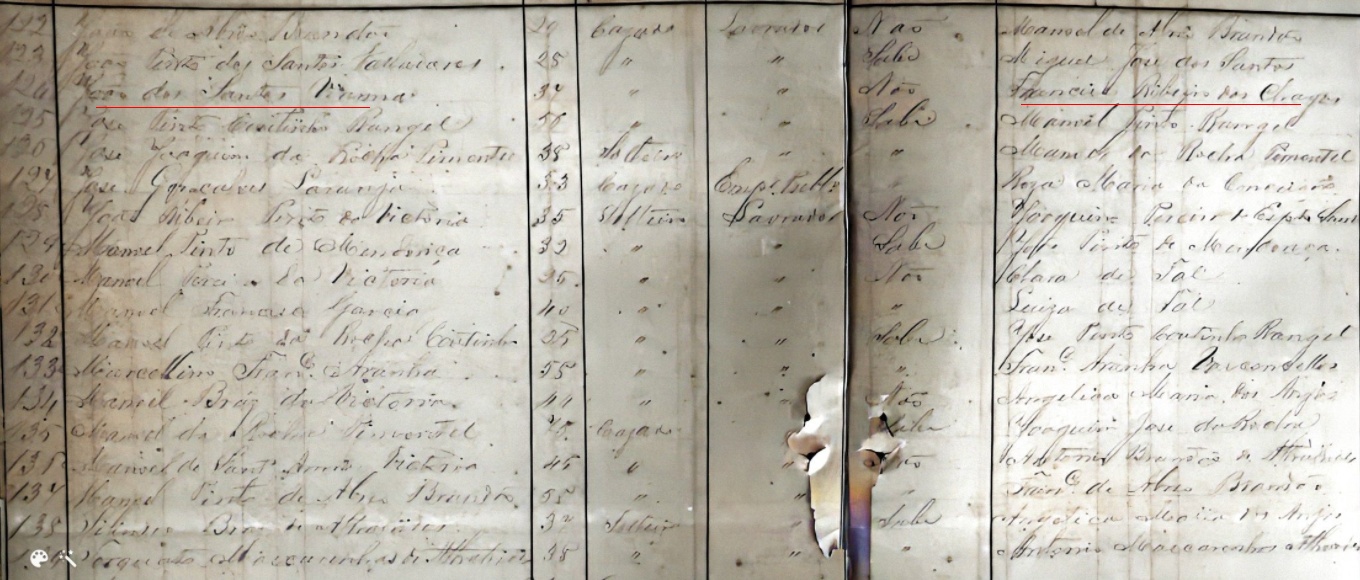 122 João de Abreu Brandão 29 Cazado Lavrador Não Manoel de Abreu Brandão
123 João Pinto dos Santos 25 " " Sabe Miguel José dos Santos
124 João dos Santos Vianna 37 " " Não Francisco Ribeiro das Chagas
125 José Pinto Coutinho Rangel 50 " " Sabe Manoel Pinto Rangel
126 José Joaquim da Rocha Pimentel 38 Solteiro " " da Rocha Pimentel
127 José Gonçalves Laranja 53 Cazado Emp. Publ. " Roza Maria da Conceição
128 João Ribeiro Pinto da Victoria 35 Solteiro Lavrador Não Joaquim Pereira do Esp.to Santo
129 Manoel Pinto de Mendonça 32 " " Sabe José Pinto de Mendonça
130 Manoel da Victoria 25 " " Não Clara de Tal
131 Manoel Francisco Garcia 40 " " " Luiza de Tal
132 Manoel Pinto da Rocha Coutinho 25 " " Sabe José Pinto Coutinho Rangel
133 Marcellino Fran.co Aranha 55 " " " Fran.co Aranha Vasconcellos
134 Manoel Braz da Victoria 44 " " Não Angelica Maria dos Anjos
135 Manoel da Rocha Pimentel Cazado Sabe Joaquim José da Rocha
136 Manoel de Sant'Anna Victoria 45 " " Não Antonio Brandão de
137 Manoel Pinto de Abreu Brandão 55 " " " Fran.co de Abreu Brandão
138 Braz de 37 Solteiro Sabe Angelica Maria dos Anjos
Torquato Mascarenhas de 38 " " " Antonio Mascarenhas